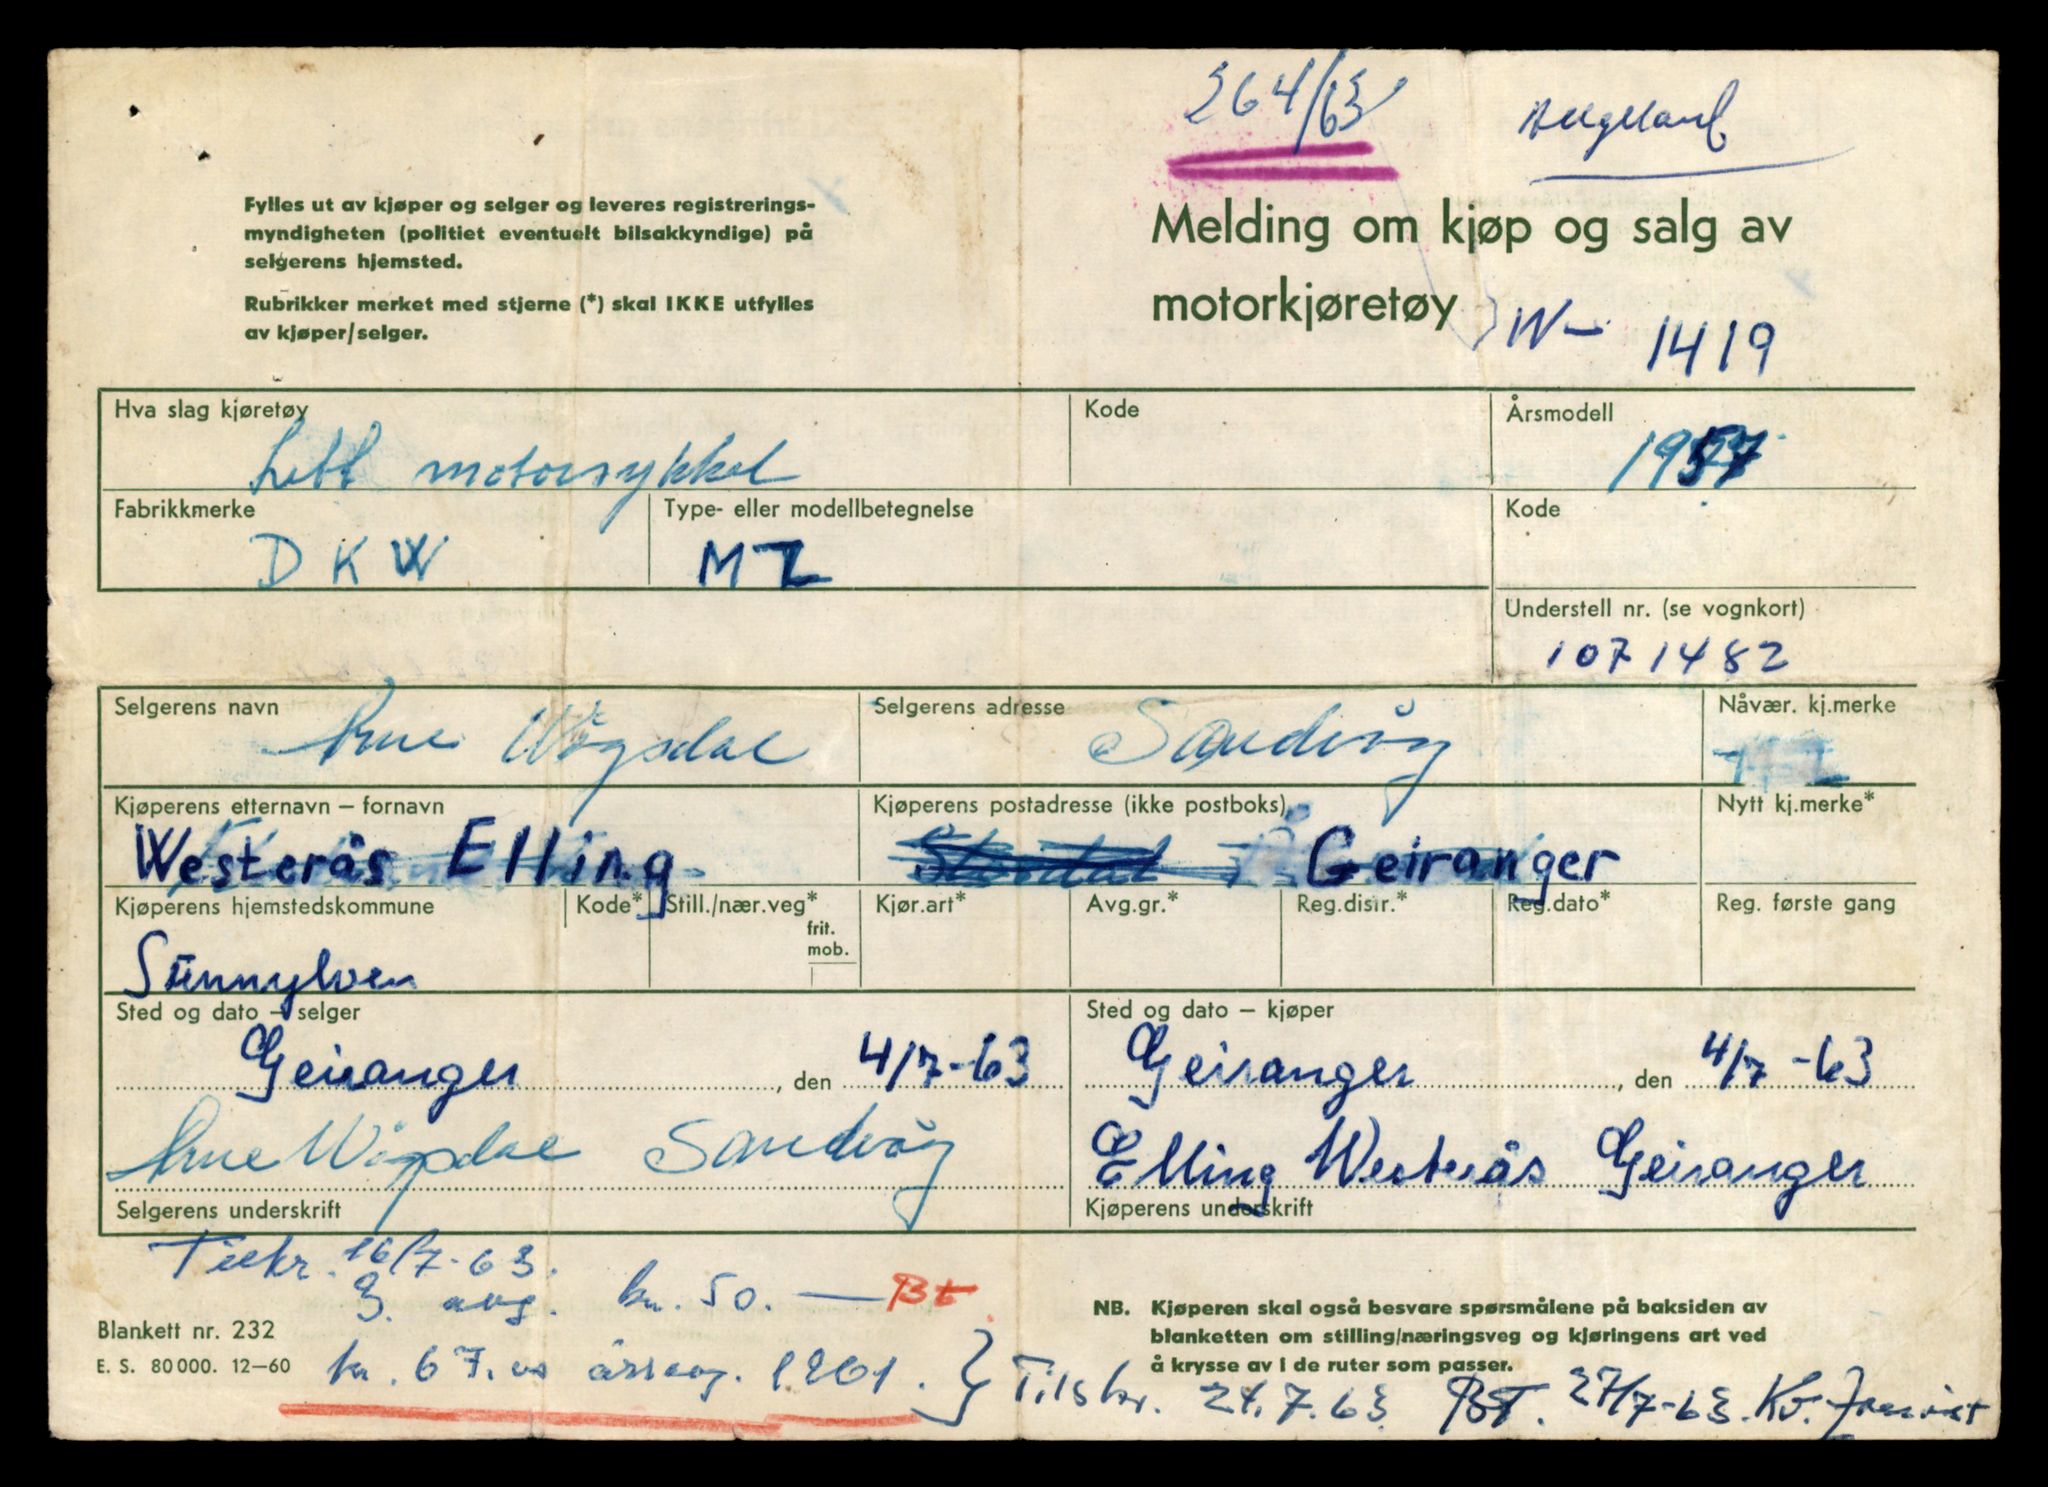 264/63
Helgeland
Fylles ut av kjøper og selger og leveres registrerings-
myndigheten (politiet eventuelt bilsakkyndige) på
selgerens hjemsted.
Rubrikker merket med stjerne (*) skal IKKE utfylles
av kjøper/selger.
Melding om kjøp og salg av
motorkjøretøy
W- 1419
Hva slag kjøretøy
Lett motorsykkel
Kode
Årsmodell
1957
Fabrikkmerke
DKW
Type- eller modellbetegnelse
MZ
Kode
Understell nr. (se vognkort)
1071482
Selgerens navn
Arne Wågsdal
Selgerens adresse
Sandvåg
Nåvær. kj.merke
Kjøperens etternavn – fornavn
Westerås Elling
Kjøperens postadresse (ikke postboks)
Geiranger
Nytt kj.merke*
Kjøperens hjemstedskommune
Sunnylven
Kode*
Still./nær.veg*
frit.
mob.
Kjør.art*
Avg.gr.*
Reg.distr.*
Reg.dato*
Reg. første gang
Sted og dato – selger
Geiranger, den 4/7-63
Sted og dato – kjøper
Geiranger, den 4/7-63
Arne Wågsdal Sandvåg
Selgerens underskrift
Elling Westerås Geiranger
Kjøperens underskrift
Tilskr. 16/7-63.
3. avg. kr. 50. — Bt.
Blankett nr. 232
E. S. 80000. 12–60
kr. 67. årsavg. 1961. } Tilskr. 24.7.63 BT. 27/7-63. Kv.
NB. Kjøperen skal også besvare spørsmålene på baksiden av
blanketten om stilling/næringsveg og kjøringens art ved
å krysse av i de ruter som passer.